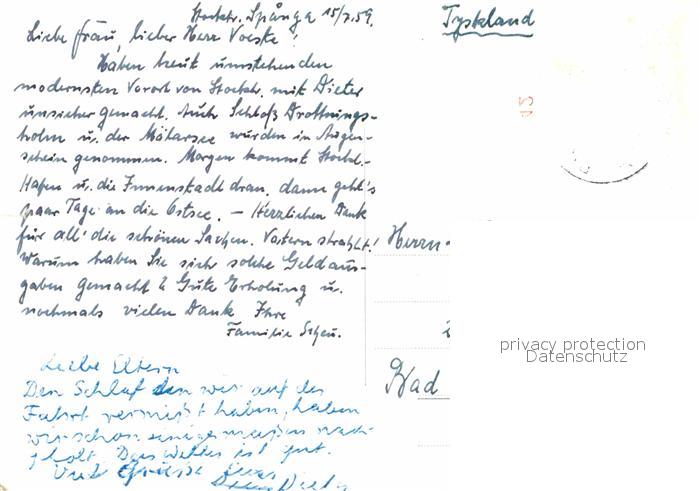 Stockh., Spånga 15/7.59.
Liebe Frau, lieber Herr Voeste!
Haben heut umstehenden
modernsten Vorort von Stockh. mit Dieter
unsicher gemacht. Auch Schloß Drottnings-
holm u. der Mälarsee wurden in Augen-
schein genommen. Morgen kommt Stockh.-
Hafen u. die Innenstadt dran, dann geht's
paar Tage an die Ostsee. – Herzlichen Dank
für all' die schönen Sachen. Vatern strahlt!
Warum haben Sie sich solche Geldaus-
gaben gemacht? Gute Erholung u.
nochmals vielen Dank Ihre
Familie Scheu.
Liebe Eltern
Den Schlaf den wir auf der
Fahrt vermißt haben, haben
wir schon einigermaßen nach-
geholt. Das Wetter ist gut.
Viele Grüsse Euer
Dieter
Tyskland
Herrn
Bad
privacy protection
Datenschutz